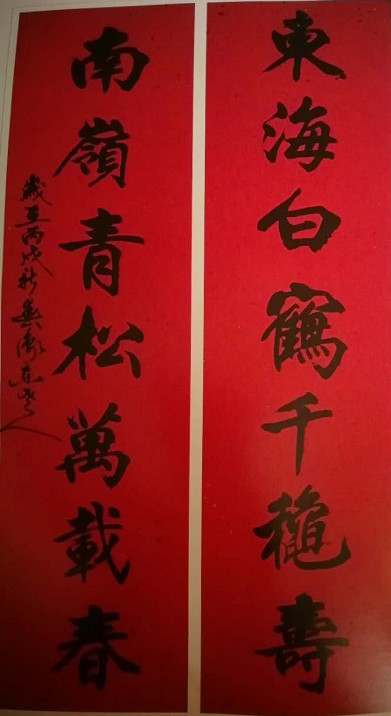 東海白鶴千龝壽
南嶺青松萬載春
歲在丙戌秋